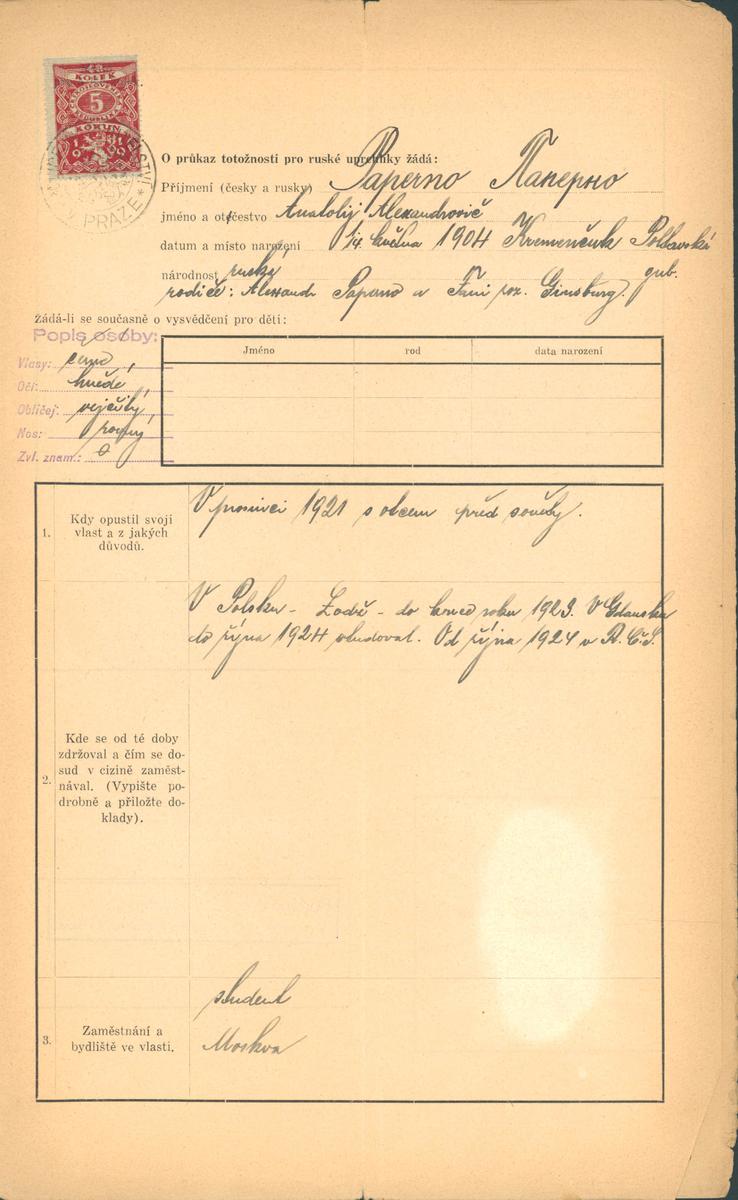 KOLEK
5
O průkaz totožnosti pro ruské uprchlíky žádá:
Příjmení (česky a rusky) Paperno Паперно
jméno a otčestvo Anatolij Alexandrovič
datum a místo narození 14 května 1904 Kremenčuk Poltavská
národnost ruská gub.
rodiče: Alexandr Paperno a Fani roz. Ginsburg.
žádá-li se současně o vysvědčení pro děti:
Popis osoby:
Vlasy: černé,
Oči: hnědé,
Obličej: vejčitý,
Nos: rovný
Zvl. znam.: 0
Jméno rod data narození
1. Kdy opustil svoji vlast a z jakých důvodů.
V prosinci 1921 s otcem před sověty.
2. Kde se od té doby zdržoval a čím se dosud v cizině zaměstnával. (Vypište podrobně a přiložte doklady).
V Polsku - Lodž - do konce roku 1923. V Gdansku
do října 1924 studoval. Od října 1924 v R.Č.S.
3. Zaměstnání a bydliště ve vlasti.
student
Moskva
V PRAZE